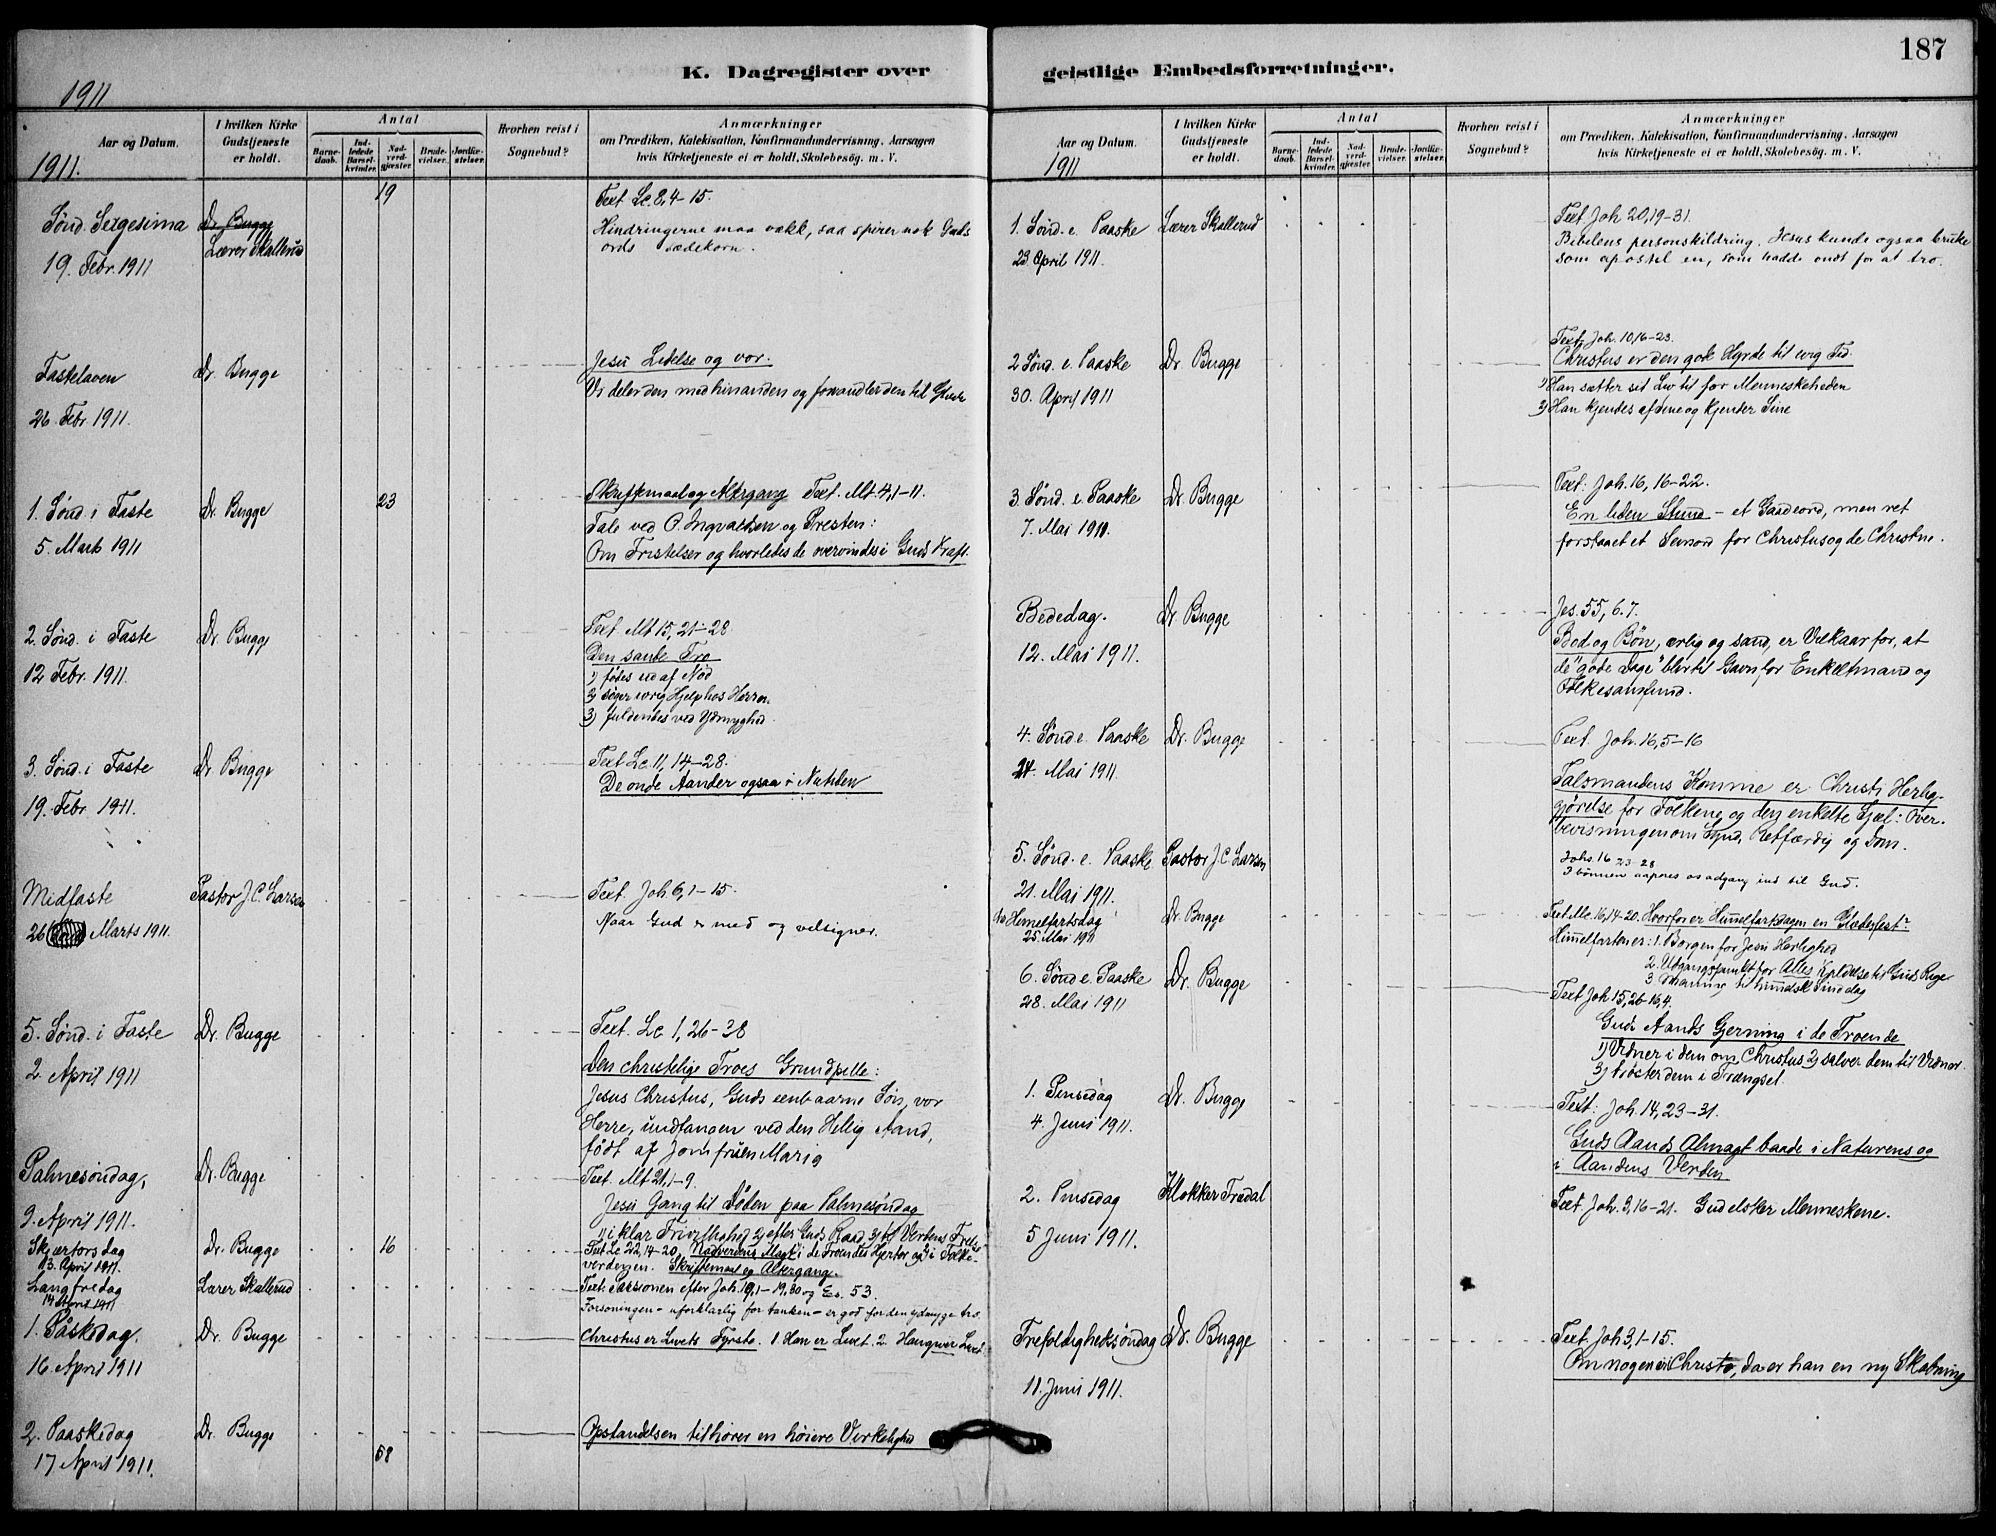 K. Dagregister over
1911
Aar og Datum.
I hvilken Kirke Gudstjeneste er holdt.
Antal
Barnedaab.
Indledede Barselkvinder.
Nadverdgjester.
Brudevielser.
Jordfæstelser.
Hvorhen reist i Sognebud?
Anmærkninger
om Prædiken, Katekisation, Konfirmandundervisning, Aarsagen
hvis Kirketjeneste ei er holdt, Skolebesøg. m. V.
1911.
19
Text Lc. 8, 4-15.
Sønd. Sexgesima
Dr. Bugge
Lærer Skallerud
Hindringerne maa vækk, saa spirer nok Guds
ords sædekorn.
19. Febr. 1911
Fastelaven
Dr. Bugge
Jesu Lidelse og vor.
Vi deler den med hinanden og forvandler den til Glæde
26. Febr. 1911.
1. Sønd. i Faste
Dr. Bugge
23
Skriftemaal og Altergang Text. Mt. 4, 1-11.
Tale ved O. Ingvaldsen og Presten:
5. Marts 1911
Om Fristelser og hvorledes de overvindes i Guds Kraft.
2. Sønd. i Faste
Dr. Bugge
Text. Mt 15, 21-28
Den sande Tro
12 Febr. 1911.
1) fødes ud af Nød
2) søger ivrig Hjelp hos Herren
3) fuldendes ved Ydmyghed.
3. Sønd. i Faste
Dr. Bugge
Text Lc. 11, 14-28.
De onde Aander ogsaa i Nutiden
19. Febr. 1911.
Midfaste
Pastor J. C. Larsen
Text. Joh. 6, 1-15.
26 Marts 1911.
Naar Gud er med og velsigner.
5. Sønd. i Faste
Dr. Bugge
Text. Lc. 1, 26-38
2. April 1911
Den christelige Troes Grundpille:
Jesus Christus, Guds eenbaarne Søn, vor
Herre, undfangen ved den Hellig Aand,
født af Jomfruen Maria
Palmesøndag,
Dr. Bugge
Text. Mt 21, 1-9.
Jesu Gang til Døden paa Palmesøndag
9. April 1911.
1) i klar Frivillighed 2) efter Guds Raad 3) til Verdens Frelse
Skjærtorsdag
13. April 1911.
Dr. Bugge
16
Text Lc 22, 14-20. Nadverens Magt i de Troendes Hjerter og i Folkeverdenen. Skriftemaal og Altergang.
Langfredag
14 April 1911
Lærer Skallerud
Text: Passionen efter Joh. 19, 1-19, 30 og Es. 53.
Forsoningen - uforklarlig for tanken - er god for den ydmyge tro
1. Påskedag.
Dr. Bugge
Christus er Livets Fyrste. 1. Han er Livet. 2. Han giver Livet
16. April 1911
2. Paaskedag
Dr. Bugge
Opstandelsen tilhører en høiere Virkelighed
17 April 1911.
58
187
geistlige Embedsforretninger.
Aar og Datum.
I hvilken Kirke Gudstjeneste er holdt.
Antal
Barnedaab.
Indledede Barselkvinder.
Nadverdgjester.
Brudevielser.
Jordfæstelser.
Hvorhen reist i Sognebud?
Anmærkninger
om Prædiken, Katekisation, Konfirmandundervisning, Aarsagen
hvis Kirketjeneste ei er holdt, Skolebesøg. m. V.
1911
1. Sønd. e. Paaske
Lærer Skallerud
Text. Joh 20, 19-31.
Bibelens personskildring. Jesus kunde ogsaa bruke
23. April 1911.
som apostel en, som hadde ondt for at tro.
Text. Joh. 10, 16-23.
2 Sønd. e. Paaske
Dr. Bugge
Christus er den gode Hyrde til evig Tid
30. April 1911
1) Han sætter sit Liv til for Menneskeheden
2) Han kjendes af sine og kjender Sine
3. Sønd. e. Paaske
Dr. Bugge
Text: Joh. 16, 16-22.
7. Mai 1911.
En liden Stund - et Gaadeord, men ret
forstaaet et Seirsord for Christus og de Christne.
Bededag.
Dr. Bugge
Jes. 55, 6. 7.
12. Mai 1911.
Bod og Bøn, ærlig og sand, er Vilkaar for, at
de "gode Dage" blir til Gavn for Enkeltmand og
Folkesamfund.
4. Sønd e. Paaske
Dr. Bugge
Text. Joh. 16, 5-16
14. Mai 1911.
Talsmandens Komme er Christi Herlig-
gjørelse for Folkene og den enkelte Sjæl: Over-
bevisningen om Synd, Retfærdig og Dom.
5. Sønd. e. Paaske
Pastor J. C. Larsen
Johs. 16 23-28
I bønnen aapnes os adgang ind til Gud.
21. Mai 1911.
Himmelfartsdag
25. Mai 1911
Dr. Bugge
Text Mc. 16, 14-20. Hvorfor er Himmelfartsdagen en Glædesfest?
Himmelfarten er: 1. Borgen for Jesu Herlighed
2. Udgangspunkt for Alles Indbydelse til Guds Rige
6. Sønd e. Paaske
Dr. Bugge
28. Mai 1911
Text Joh 15, 26-16, 4.
Guds Aands Gjerning i de Troende
1) Vidner i dem om Christus 2) salver dem til Vidner
3) trøster dem i Trængsel.
1. Pinsedag
Dr. Bugge
Text: Joh. 14, 23-31.
4. Juni 1911.
Guds Aands Almagt baade i Naturens og
i Aandens Verden
2. Pinsedag
Klokker Tredal
Text. Joh. 3, 16-21. Gud elsker Menneskene.
5 Juni 1911.
Trefoldighedssøndag
Dr. Bugge
Text. Joh. 3, 1-15.
Om nogen er i Christo, da er han en ny Skabning
11. Juni 1911.